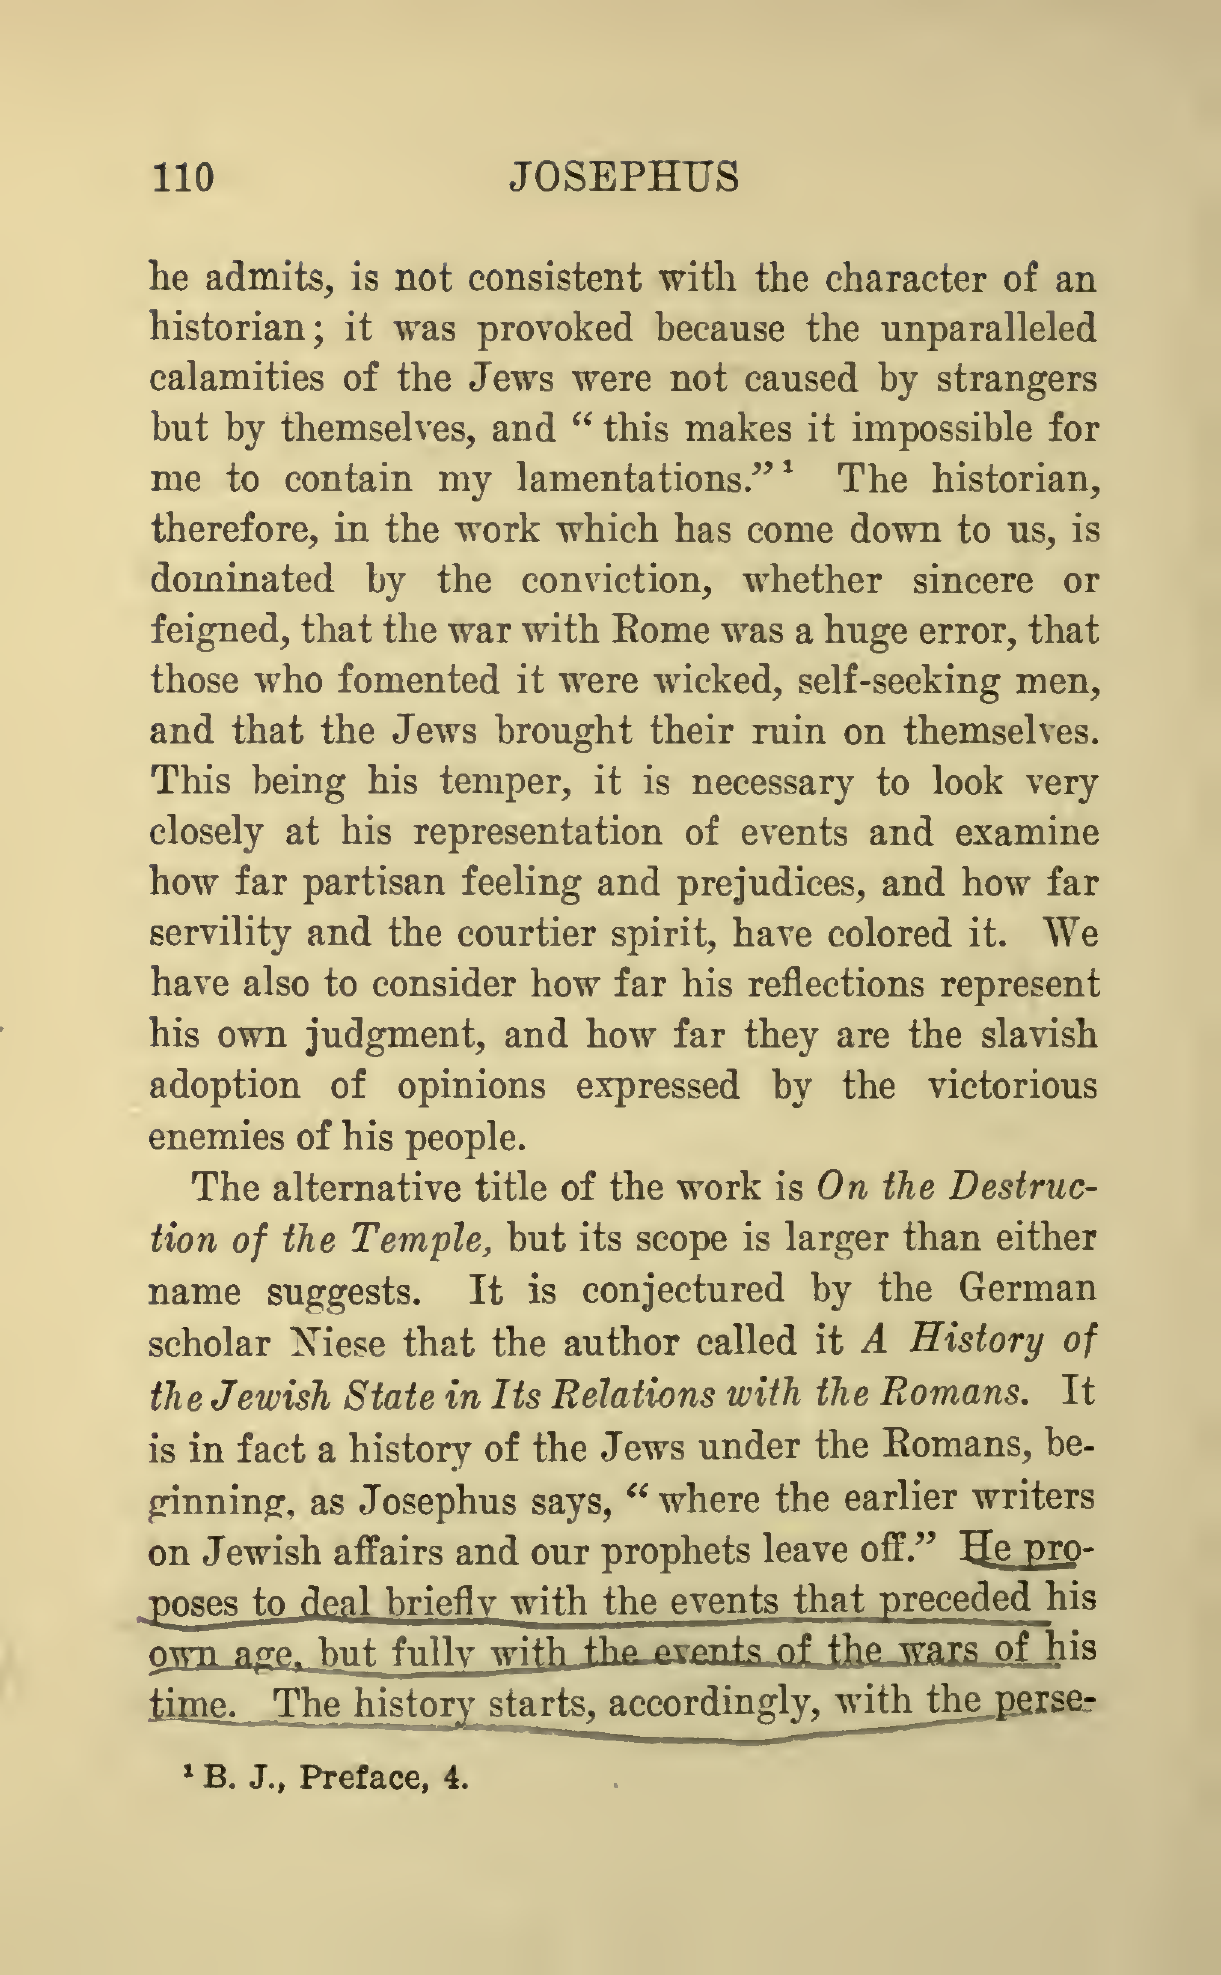 110 JOSEPHUS
he admits, is not consistent with the character of an
historian; it was provoked because the unparalleled
calamities of the Jews were not caused by strangers
but by themselves, and “ this makes it impossible for
me to contain my lamentations.” ¹ The historian,
therefore, in the work which has come down to us, is
dominated by the conviction, whether sincere or
feigned, that the war with Rome was a huge error, that
those who fomented it were wicked, self-seeking men,
and that the Jews brought their ruin on themselves.
This being his temper, it is necessary to look very
closely at his representation of events and examine
how far partisan feeling and prejudices, and how far
servility and the courtier spirit, have colored it. We
have also to consider how far his reflections represent
his own judgment, and how far they are the slavish
adoption of opinions expressed by the victorious
enemies of his people.
The alternative title of the work is On the Destruc-
tion of the Temple, but its scope is larger than either
name suggests. It is conjectured by the German
scholar Niese that the author called it A History of
the Jewish State in Its Relations with the Romans. It
is in fact a history of the Jews under the Romans, be-
ginning, as Josephus says, “ where the earlier writers
on Jewish affairs and our prophets leave off.” He pro-
poses to deal briefly with the events that preceded his
own age, but fully with the events of the wars of his
time. The history starts, accordingly, with the perse-
¹ B. J., Preface, 4.